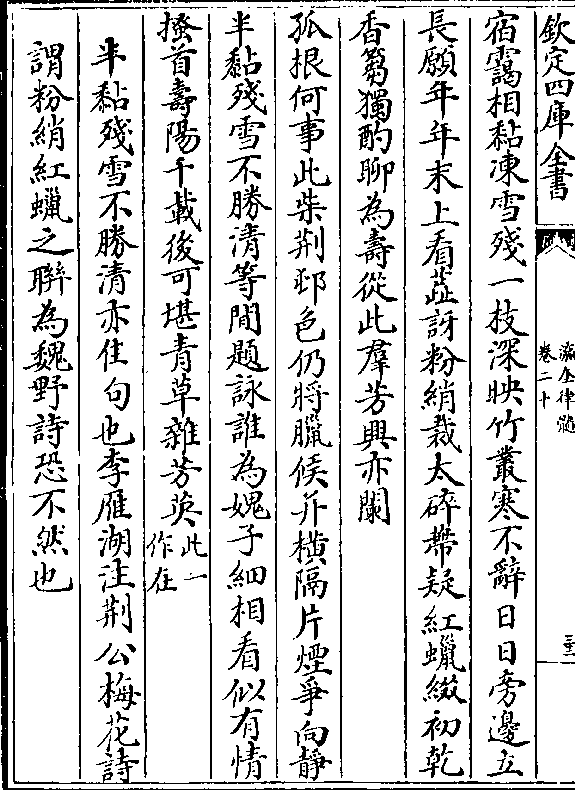 欽定四庫全書
瀛奎律髓
卷二十
宿靄相黏凍雪殘一枝深映竹叢寒不辭日日旁邊立
長願年年末上看蕋訝粉綃裁太碎蔕疑紅蠟綴初乾
香蒭獨酌聊為壽從此羣芳興亦闌
孤根何事此柴荆邨色仍將臘候并橫隔片煙爭向靜
半黏殘雪不勝清等閒題詠誰為媿子細相看似有情
搔首壽陽千載後可堪青草雜芳英
此一
作在
半黏殘雪不勝清亦佳句也李雁湖注荆公梅花詩
謂粉綃紅蠟之聯為魏野詩恐不然也